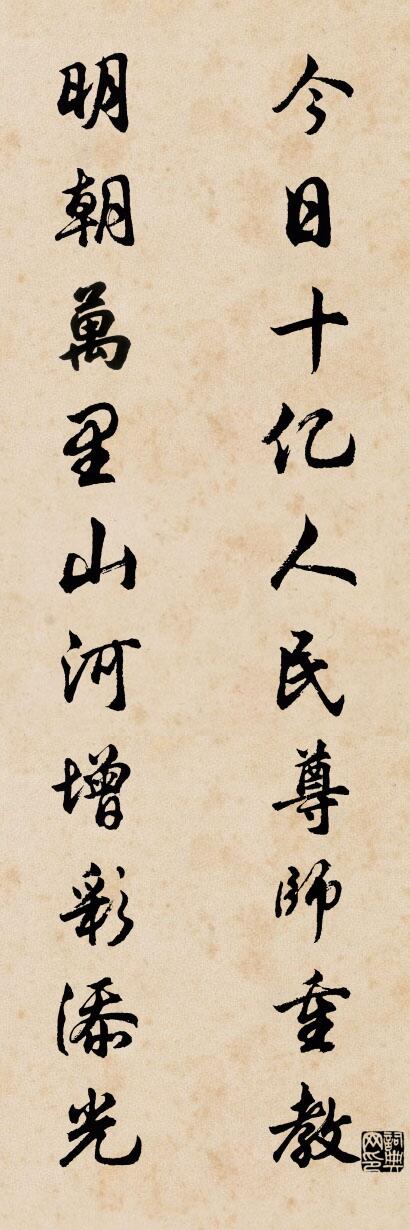 今日十亿人民尊師重教
明朝萬里山河增彩添光
詞典網印